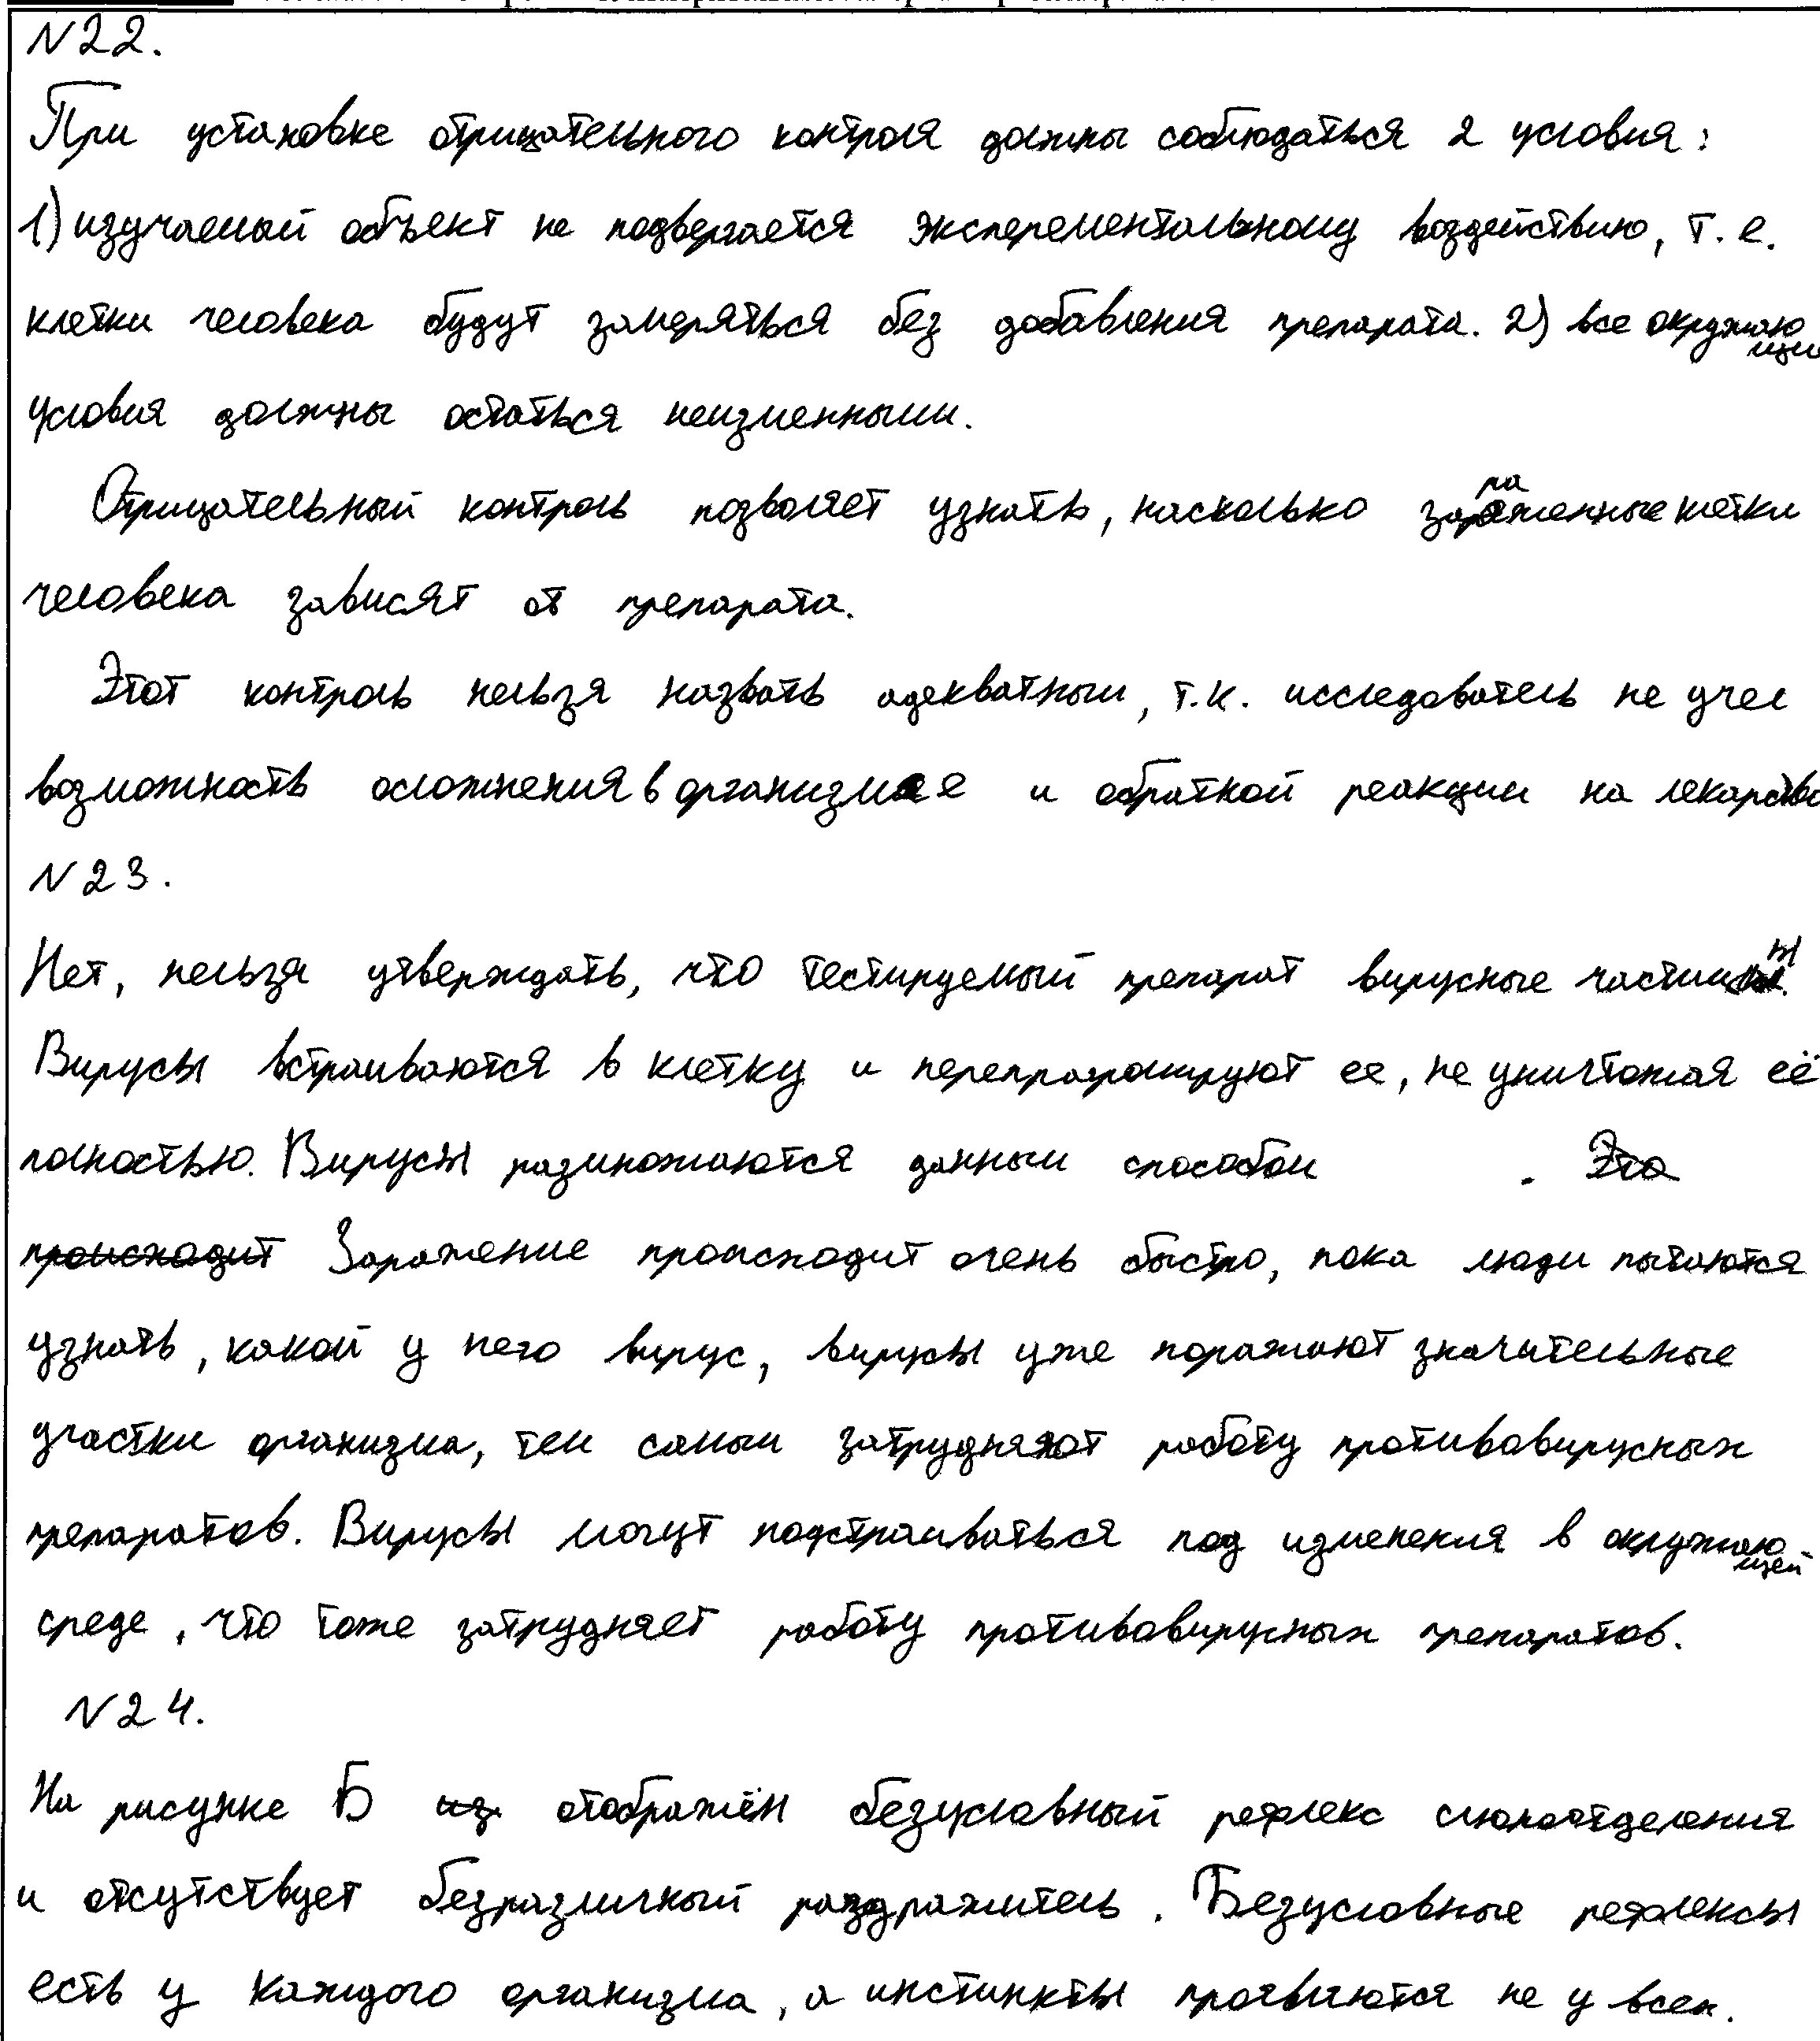 №22.
При установке отрицательного контроля должны соблюдаться 2 условия:
1) изучаемый объект не подвергается эксперементальному воздействию, т.е.
клетки человека будут замеряться без добавления препарата. 2) все окружающие
условия должны остаться неизменными.
Отрицательный контроль позволяет узнать, насколько зараженные клетки
человека зависят от препарата.
Этот контроль нельзя назвать адекватным, т.к. исследователь не учел
возможность осложнения в организме и обратной реакции на лекарство
№23.
Нет, нельзя утверждать, что тестируемый препарат вирусные частицы.
Вирусы встраиваются в клетку и перепрограмируют ее, не уничтожая её
полностью. Вирусы размножаются данным способом . Это
происходит Заражение происходит очень быстро, пока люди пытаются
узнать, какой у него вирус, вирусы уже поражают значительные
участки организма, тем самым затрудняют работу противовирусных
препаратов. Вирусы могут подстраиваться под изменения в окружающей
среде, что тоже затрудняет работу противовирусных препаратов.
№24.
На рисунке Б из отображён безусловный рефлекс слюноотделения
и отсутствует безразличный раздражитель. Безусловные рефлексы
есть у каждого организма, а инстинкты проявляются не у всех.